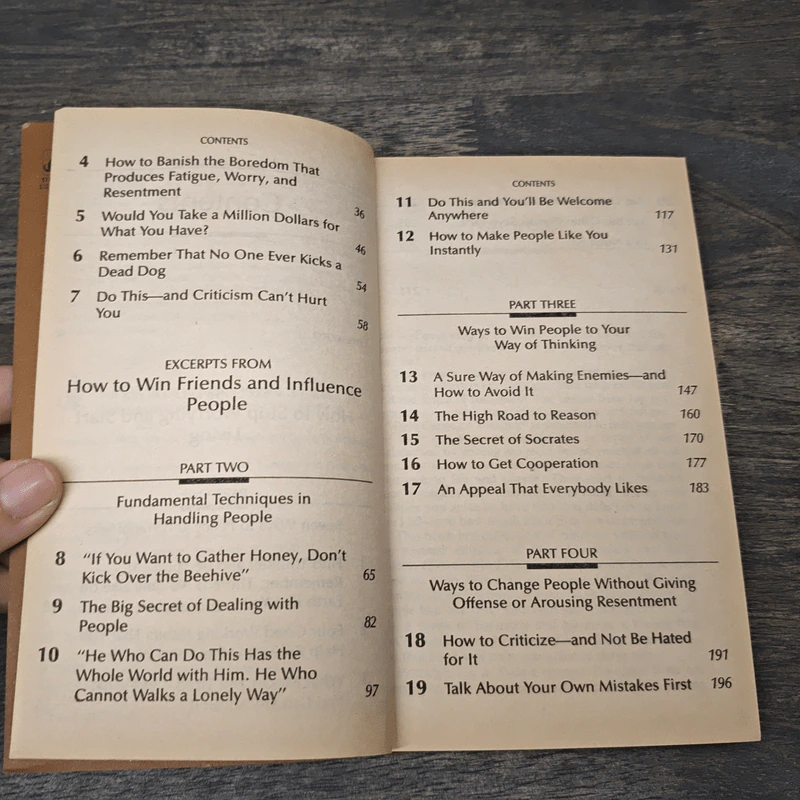 CONTENTS
4 How to Banish the Boredom That
Produces Fatigue, Worry, and
Resentment 36
5 Would You Take a Million Dollars for
What You Have? 46
6 Remember That No One Ever Kicks a
Dead Dog 54
7 Do This—and Criticism Can't Hurt
You 58
EXCERPTS FROM
How to Win Friends and Influence
People
PART TWO
Fundamental Techniques in
Handling People
8 "If You Want to Gather Honey, Don't
Kick Over the Beehive" 65
9 The Big Secret of Dealing with
People 82
10 "He Who Can Do This Has the
Whole World with Him. He Who
Cannot Walks a Lonely Way" 97
CONTENTS
11 Do This and You'll Be Welcome
Anywhere 117
12 How to Make People Like You
Instantly 131
PART THREE
Ways to Win People to Your
Way of Thinking
13 A Sure Way of Making Enemies—and
How to Avoid It 147
14 The High Road to Reason 160
15 The Secret of Socrates 170
16 How to Get Cooperation 177
17 An Appeal That Everybody Likes 183
PART FOUR
Ways to Change People Without Giving
Offense or Arousing Resentment
18 How to Criticize—and Not Be Hated
for It 191
19 Talk About Your Own Mistakes First 196